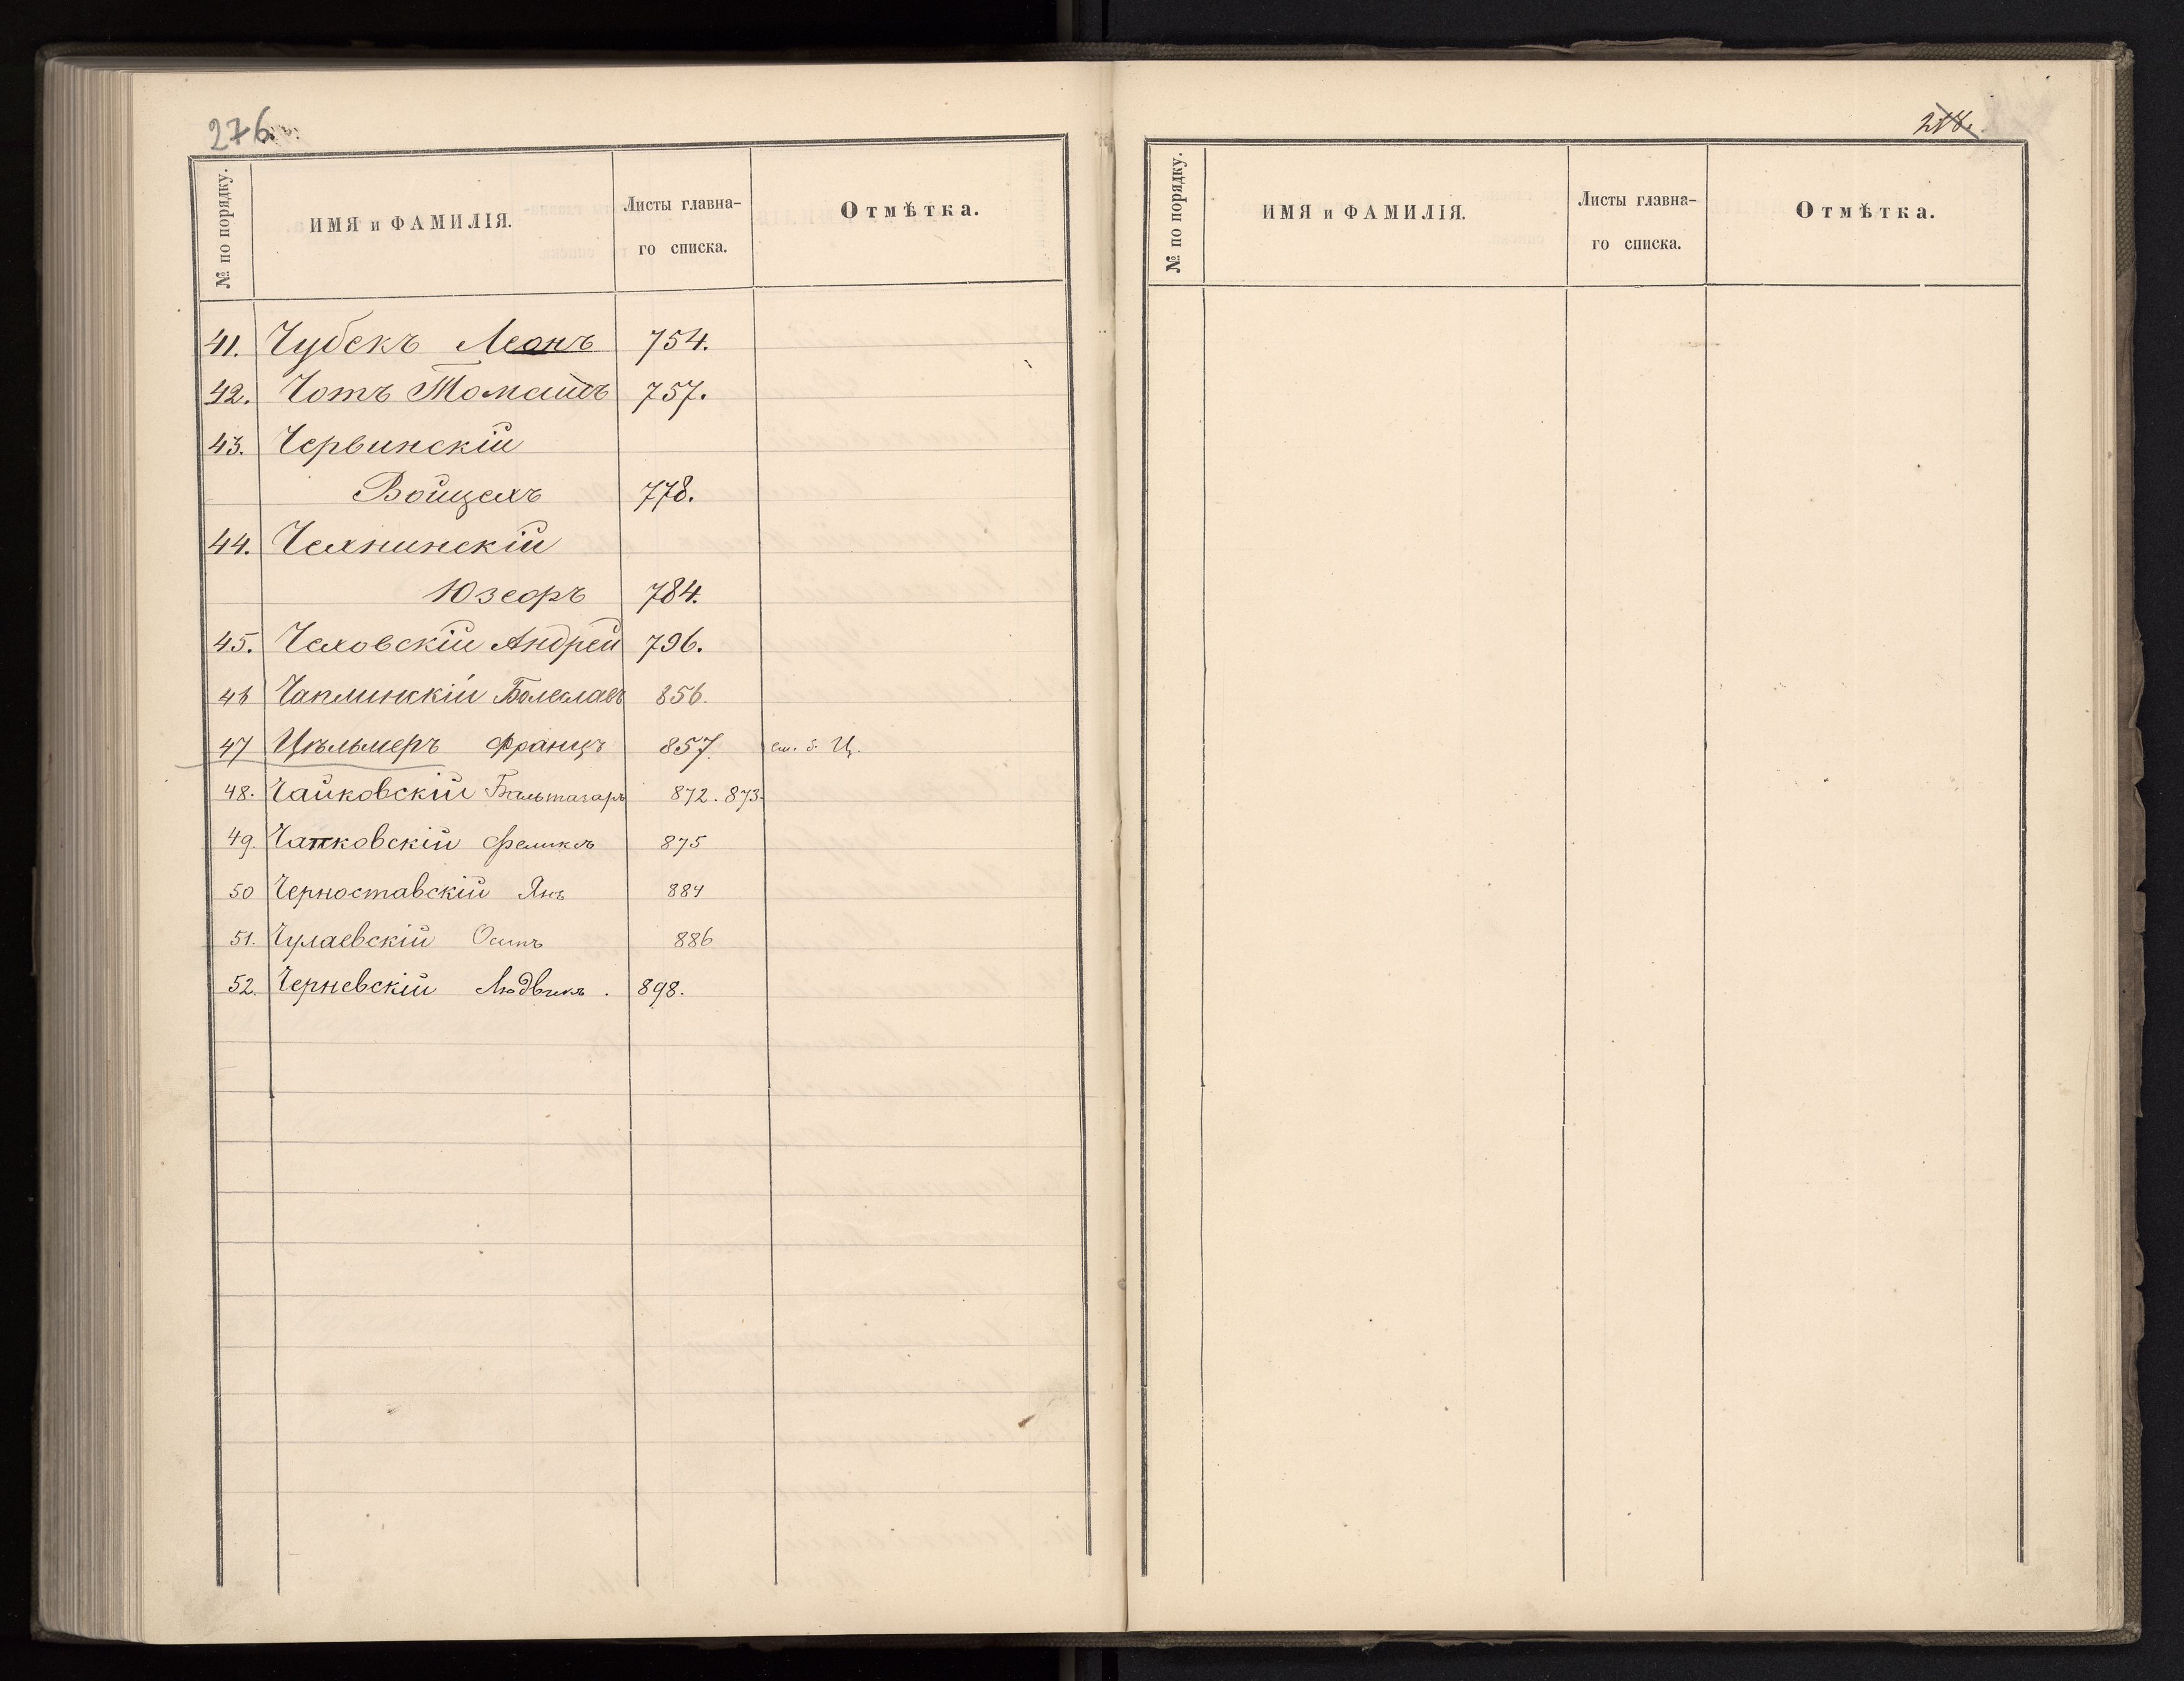 276
№ по порядку.
ИМЯ и ФАМИЛІЯ.
Листы главна-
го списка.
Отмѣтка.
41. Чубекъ Леонъ 754.
42. Чотъ Томашъ 757.
43. Червинскій
Войцехъ 778.
44. Чехнинскій
Юзефъ 784.
45. Чеховскій Андрей 796.
46 Чаплинскій Болеславъ 856.
47 Цѣльмеръ Францъ 857. см. б. Ц.
48. Чайковскій Бальтазаръ 872. 873.
49. Чапковскій Феликсъ 875
50 Черноставскій Янъ 884
51. Чулаевскій Осипъ 886
52. Черневскій Людвикъ. 898.
№ по порядку.
ИМЯ и ФАМИЛІЯ.
Листы главна-
го списка.
Отмѣтка.